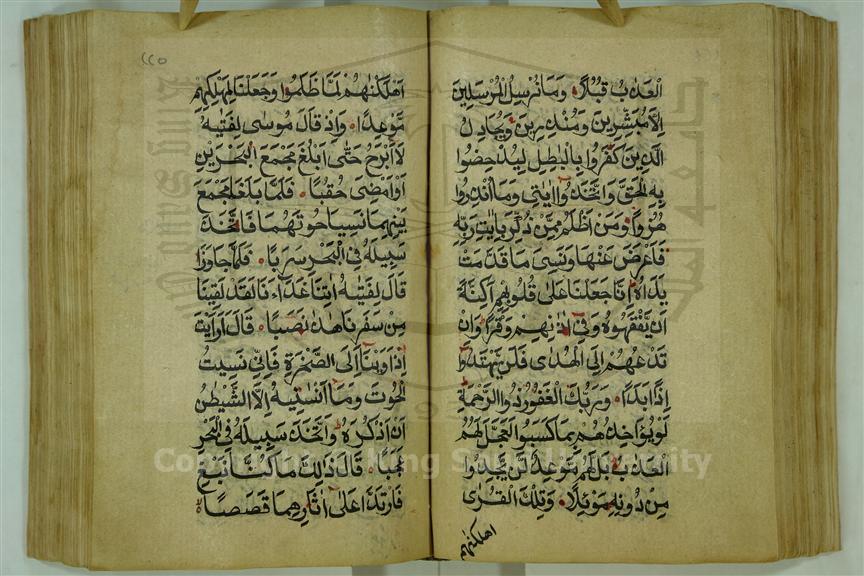 العذاب قبلا وما نرسل المرسلين
الا مبشرين ومنذرين ويجادل
الذين كفروا بالبطل ليدحضوا
به الحق واتخذوا ايتي وما انذروا
هزوا ومن اظلم ممن ذكر بايت ربه
فاعرض عنها ونسي ما قدمت
يداه انا جعلنا على قلوبهم اكنة
ان يفقهوه وفي اذانهم وقرا وان
تدعهم الى الهدى فلن يهتدوا
اذا ابدا وربك الغفور ذوا الرحمة
لو يؤاخذهم بما كسبوا لعجل لهم
العذاب بل لهم موعد لن يجدوا
من دونه موئلا وتلك القرى
اهلكنهم
٢٢٥
اهلكنهم لما ظلموا وجعلنا لمهلكهم
موعدا واذ قال موسى لفتيه
لا ابرح حتى ابلغ مجمع البحرين
او امضي حقبا فلما بلغا مجمع
بينهما نسيا حوتهما فاتخذ
سبيله في البحر سربا فلما جاوزا
قال لفتيه اتنا غداءنا لقد لقينا
من سفرنا هذا نصبا قال ارايت
اذ اوينا الى الصخرة فاني نسيت
الحوت وما انسنيه الا الشيطن
ان اذكره واتخذ سبيله في البحر
عجبا قال ذلك ما كنا نبغ
فارتدا على اثارهما قصصا